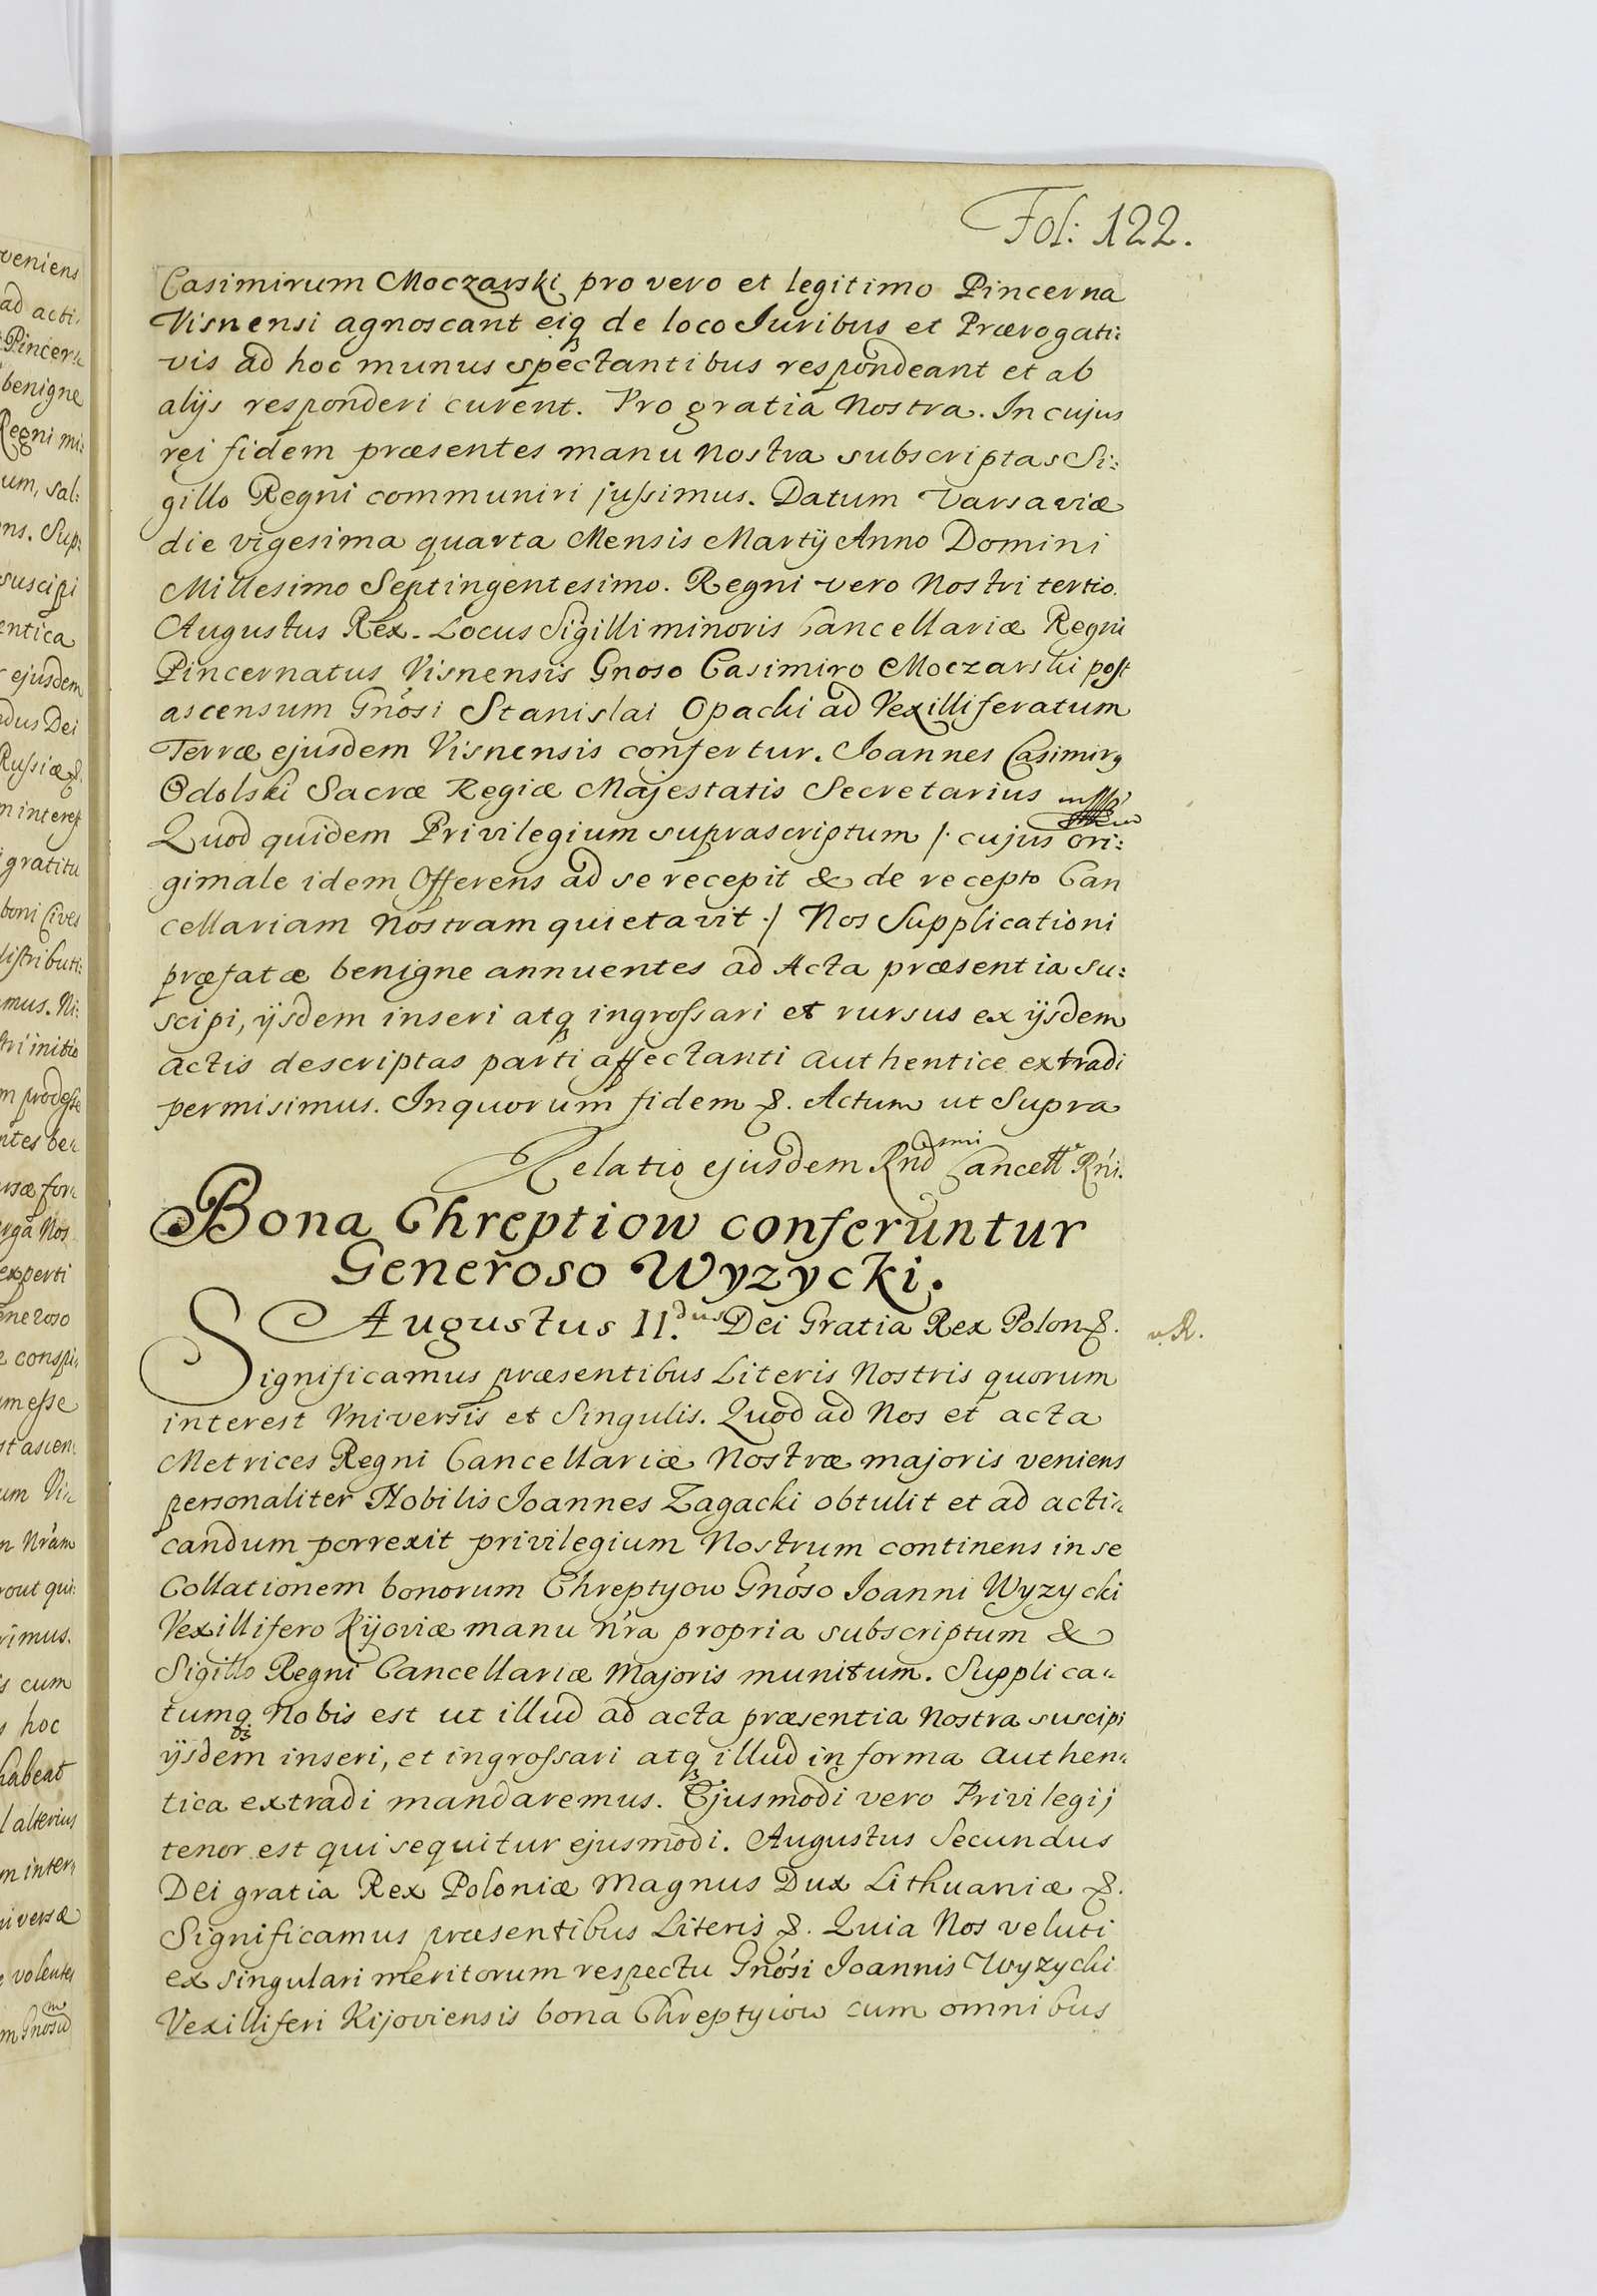 Fol: 122.
Casimirum Moczarski pro vero et legitimo Pincerna
Visnensi agnoscant eiq₃ de loco Iuribus et Prærogati:
vis ad hoc munus spectantibus respondeant et ab
alijs responderi curent. Pro gratia Nostra. In cujus
rei fidem præsentes manu nostra subscriptas Si:
gillo Regni communiri jussimus. Datum Varsaviæ
die vigesima quarta Mensis Martij Anno Domini
Millesimo Septingentesimo. Regni vero Nostri tertio.
Augustus Rex. Locus Sigilli minoris Cancellariæ Regni
Pincernatus Visnensis Gnoso Casimiro Moczarski post
ascensum Gnősi Stanislai Opacki ad Vexilliferatum
Terræ ejusdem Visnensis confertur. Joannes Casimirꝯ
Odolski Sacræ Regiæ Majestatis Secretarius
Quod quidem Privilegium suprascriptum /. cujus ori:
gimale idem Offerens ad se recepit & de recepto Can
cellariam Nostram quietavit ./ Nos Supplicationi
præfatæ benigne annuentes ad Acta præsentia su:
scipi, ijsdem inseri atq₃ ingrossari et rursus ex ijsdem
actis descriptas parti affectanti authentice extradi
permisimus. In quorum fidem &. Actum ut Supra
Relatio ejusdem Rnd smi Cancell Rńi.
Bona Chreptiow conferuntur
Generoso Wyzycki.
Augustus II.dus Dei Gratia Rex Polon &.
Significamus præsentibus Literis Nostris quorum
interest Vniversis et Singulis. Quod ad Nos et acta
Metrices Regni Cancellariæ Nostræ majoris veniens
personaliter Nobilis Joannes Zagacki obtulit et ad acti-
candum porrexit privilegium Nostrum continens in se
Collationem bonorum Chreptyow Gnőso Joanni Wyzycki
Vexillifero Kijoviæ manu ńra propria subscriptum &
Sigillo Regni Cancellariæ Majoris munitum. Supplica-
tumq₃ Nobis est ut illud ad acta præsentia Nostra suscipi
ijsdem inseri, et ingrossari atq₃ illud in forma authen-
tica extradi mandaremus. Ejusmodi vero Privilegij
tenor est qui sequitur ejusmodi. Augustus Secundus
Dei gratia Rex Poloniæ Magnus Dux Lithuaniæ &.
Significamus præsentibus Literis &. Quia Nos veluti
ex singulari meritorum respectu Gnősi Joannis Wyzycki
Vexilliferi Kijoviensis bona Chreptyiow cum omnibus